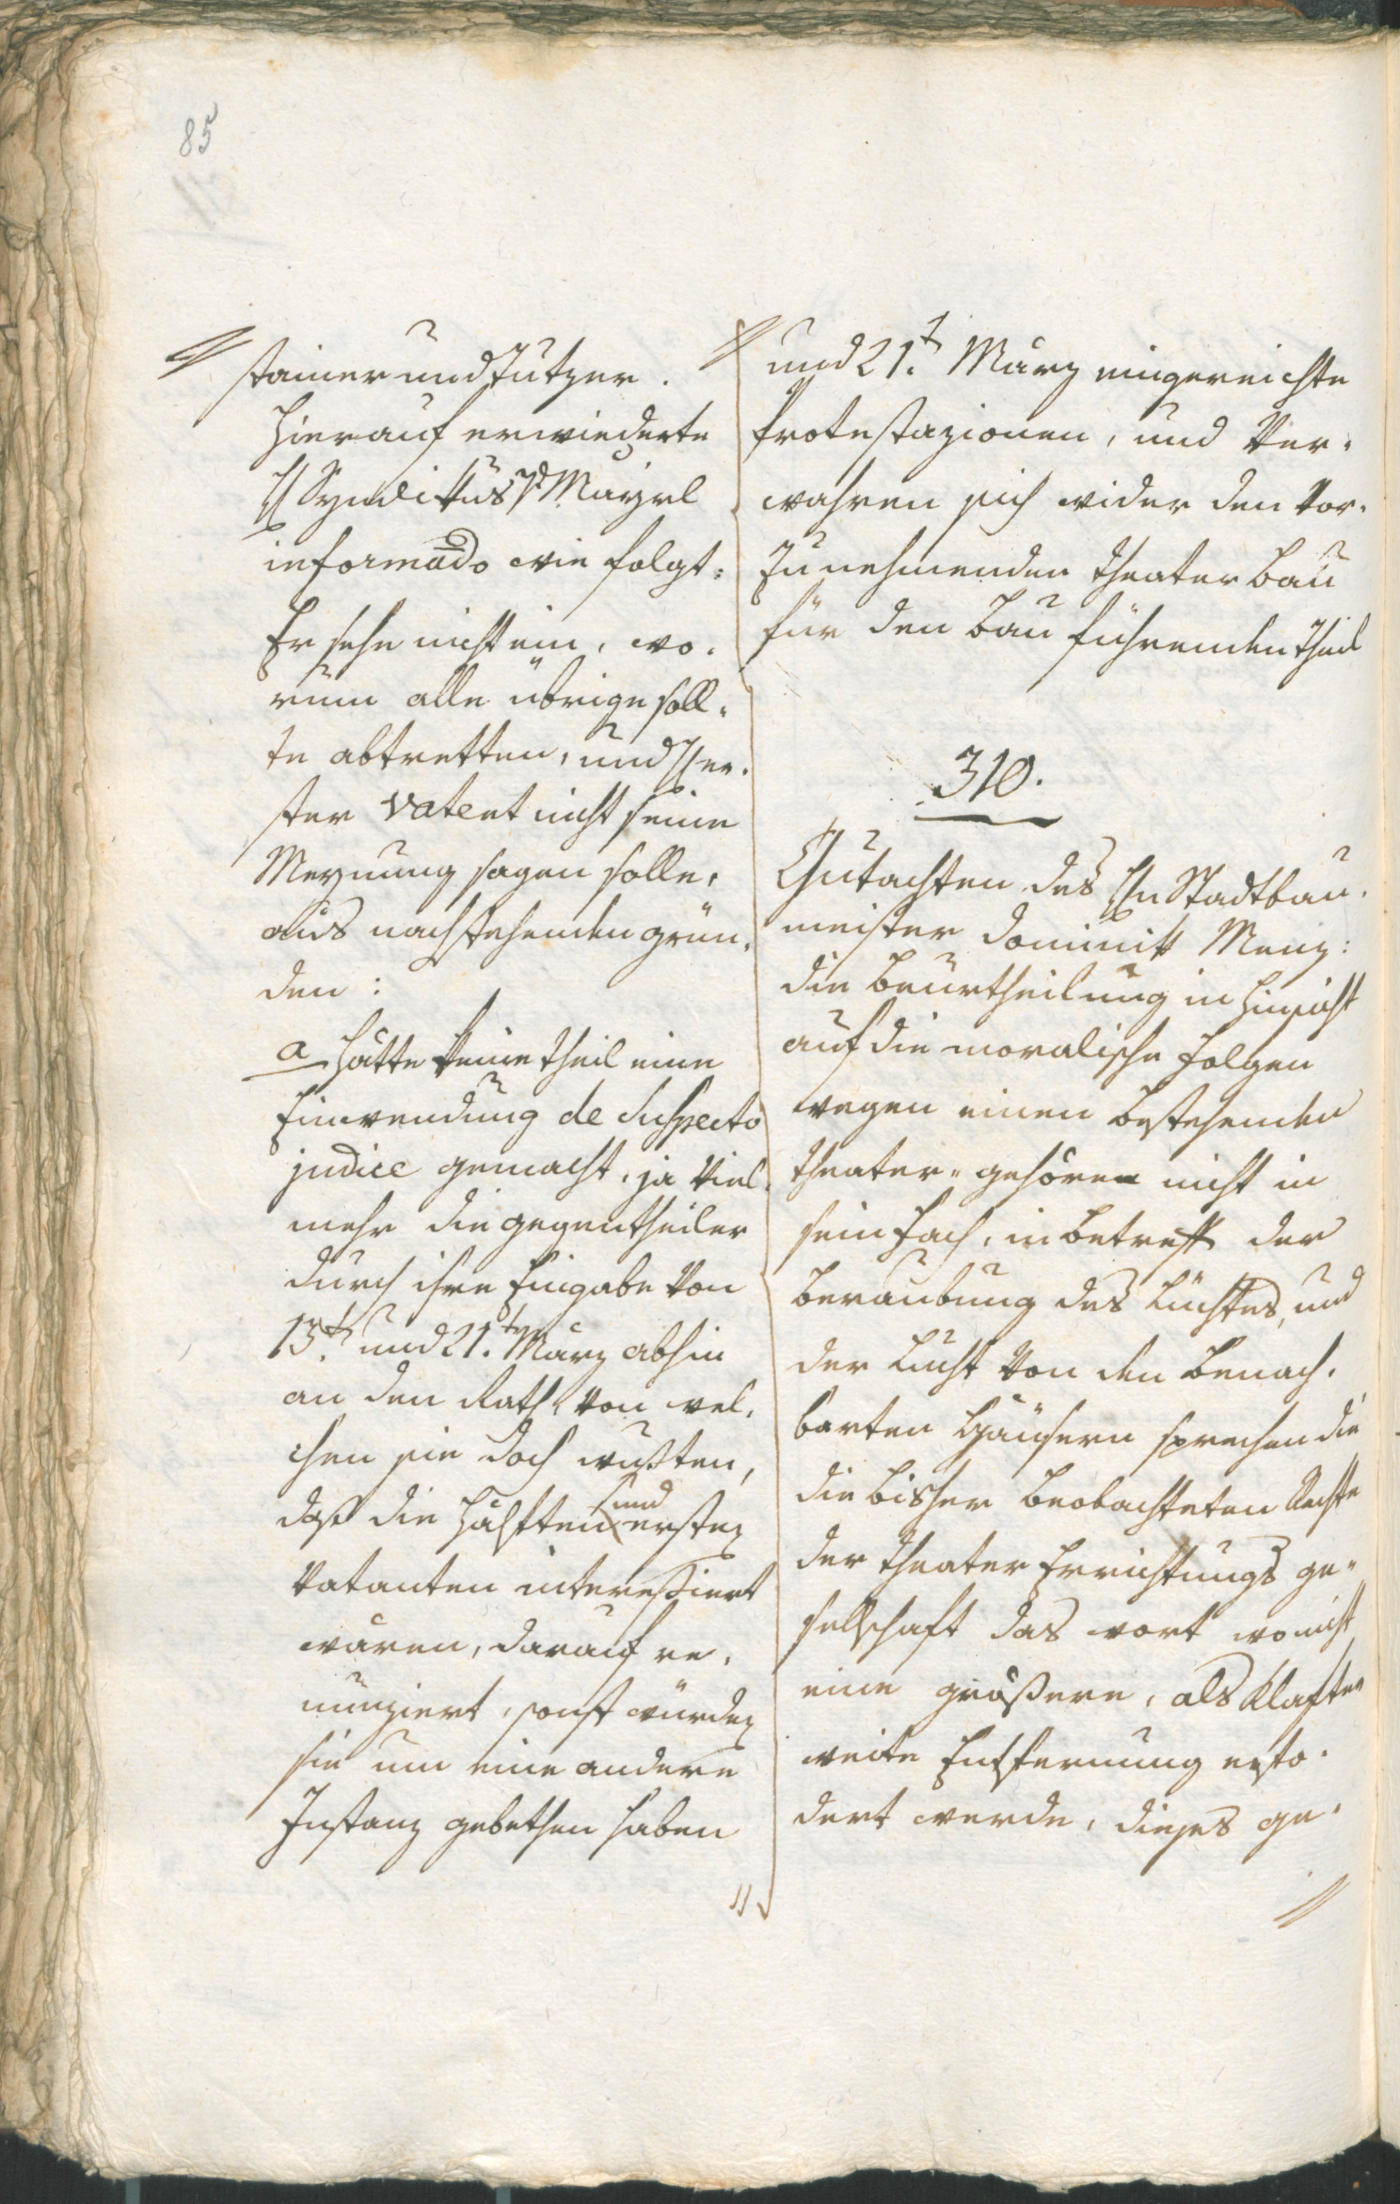 85
stainer und Tutzer.
Hierauf erwiederte
H Syndikus Dr Mayrl
informādo wie folgt:
Er sehe nicht ein, wo-
rum alle übrige soll-
te abtretten, und Her-
ster vatent nicht seine
Meynung sagen solle,
aus nachstehenden grün-
den:
a Hätte keine theil eine
Einwendung de suspecto
judice gemacht, ja viel-
mehr die gegentheiler
durch ihre Eingabe von
13t. und 21.t März abhin
an den Rath von wel-
chen sie doch wußten,
daß die Hälften und ersten
Votanten interessiert
wären, darauf re-
nunziert, sonst würden
sie um eine andere
Instanz gebethen haben
und 21.t März eingereichte
Protestazionen, und Ver-
wahren sich wider den vor-
zunehmenden theater bau
für den bau führenden theil
310.
Gutachten des Hn Stadtbau-
meister Dominik Menz:
die beurtheilung in Hinsicht
auf die moralische folgen
wegen einen bestehenden
theater- gehören nicht in
sein fach, in betreff der
beraubung des Lichtes, und
der Luft von den benach-
barten Häusern sprechen die
die bisher beobachteten Rechte
der theater Errichtungs ge-
sellschaft das wort wo nicht
eine größere, als Klafter
weite Entfernung erfo-
dert werde, dieses ge-